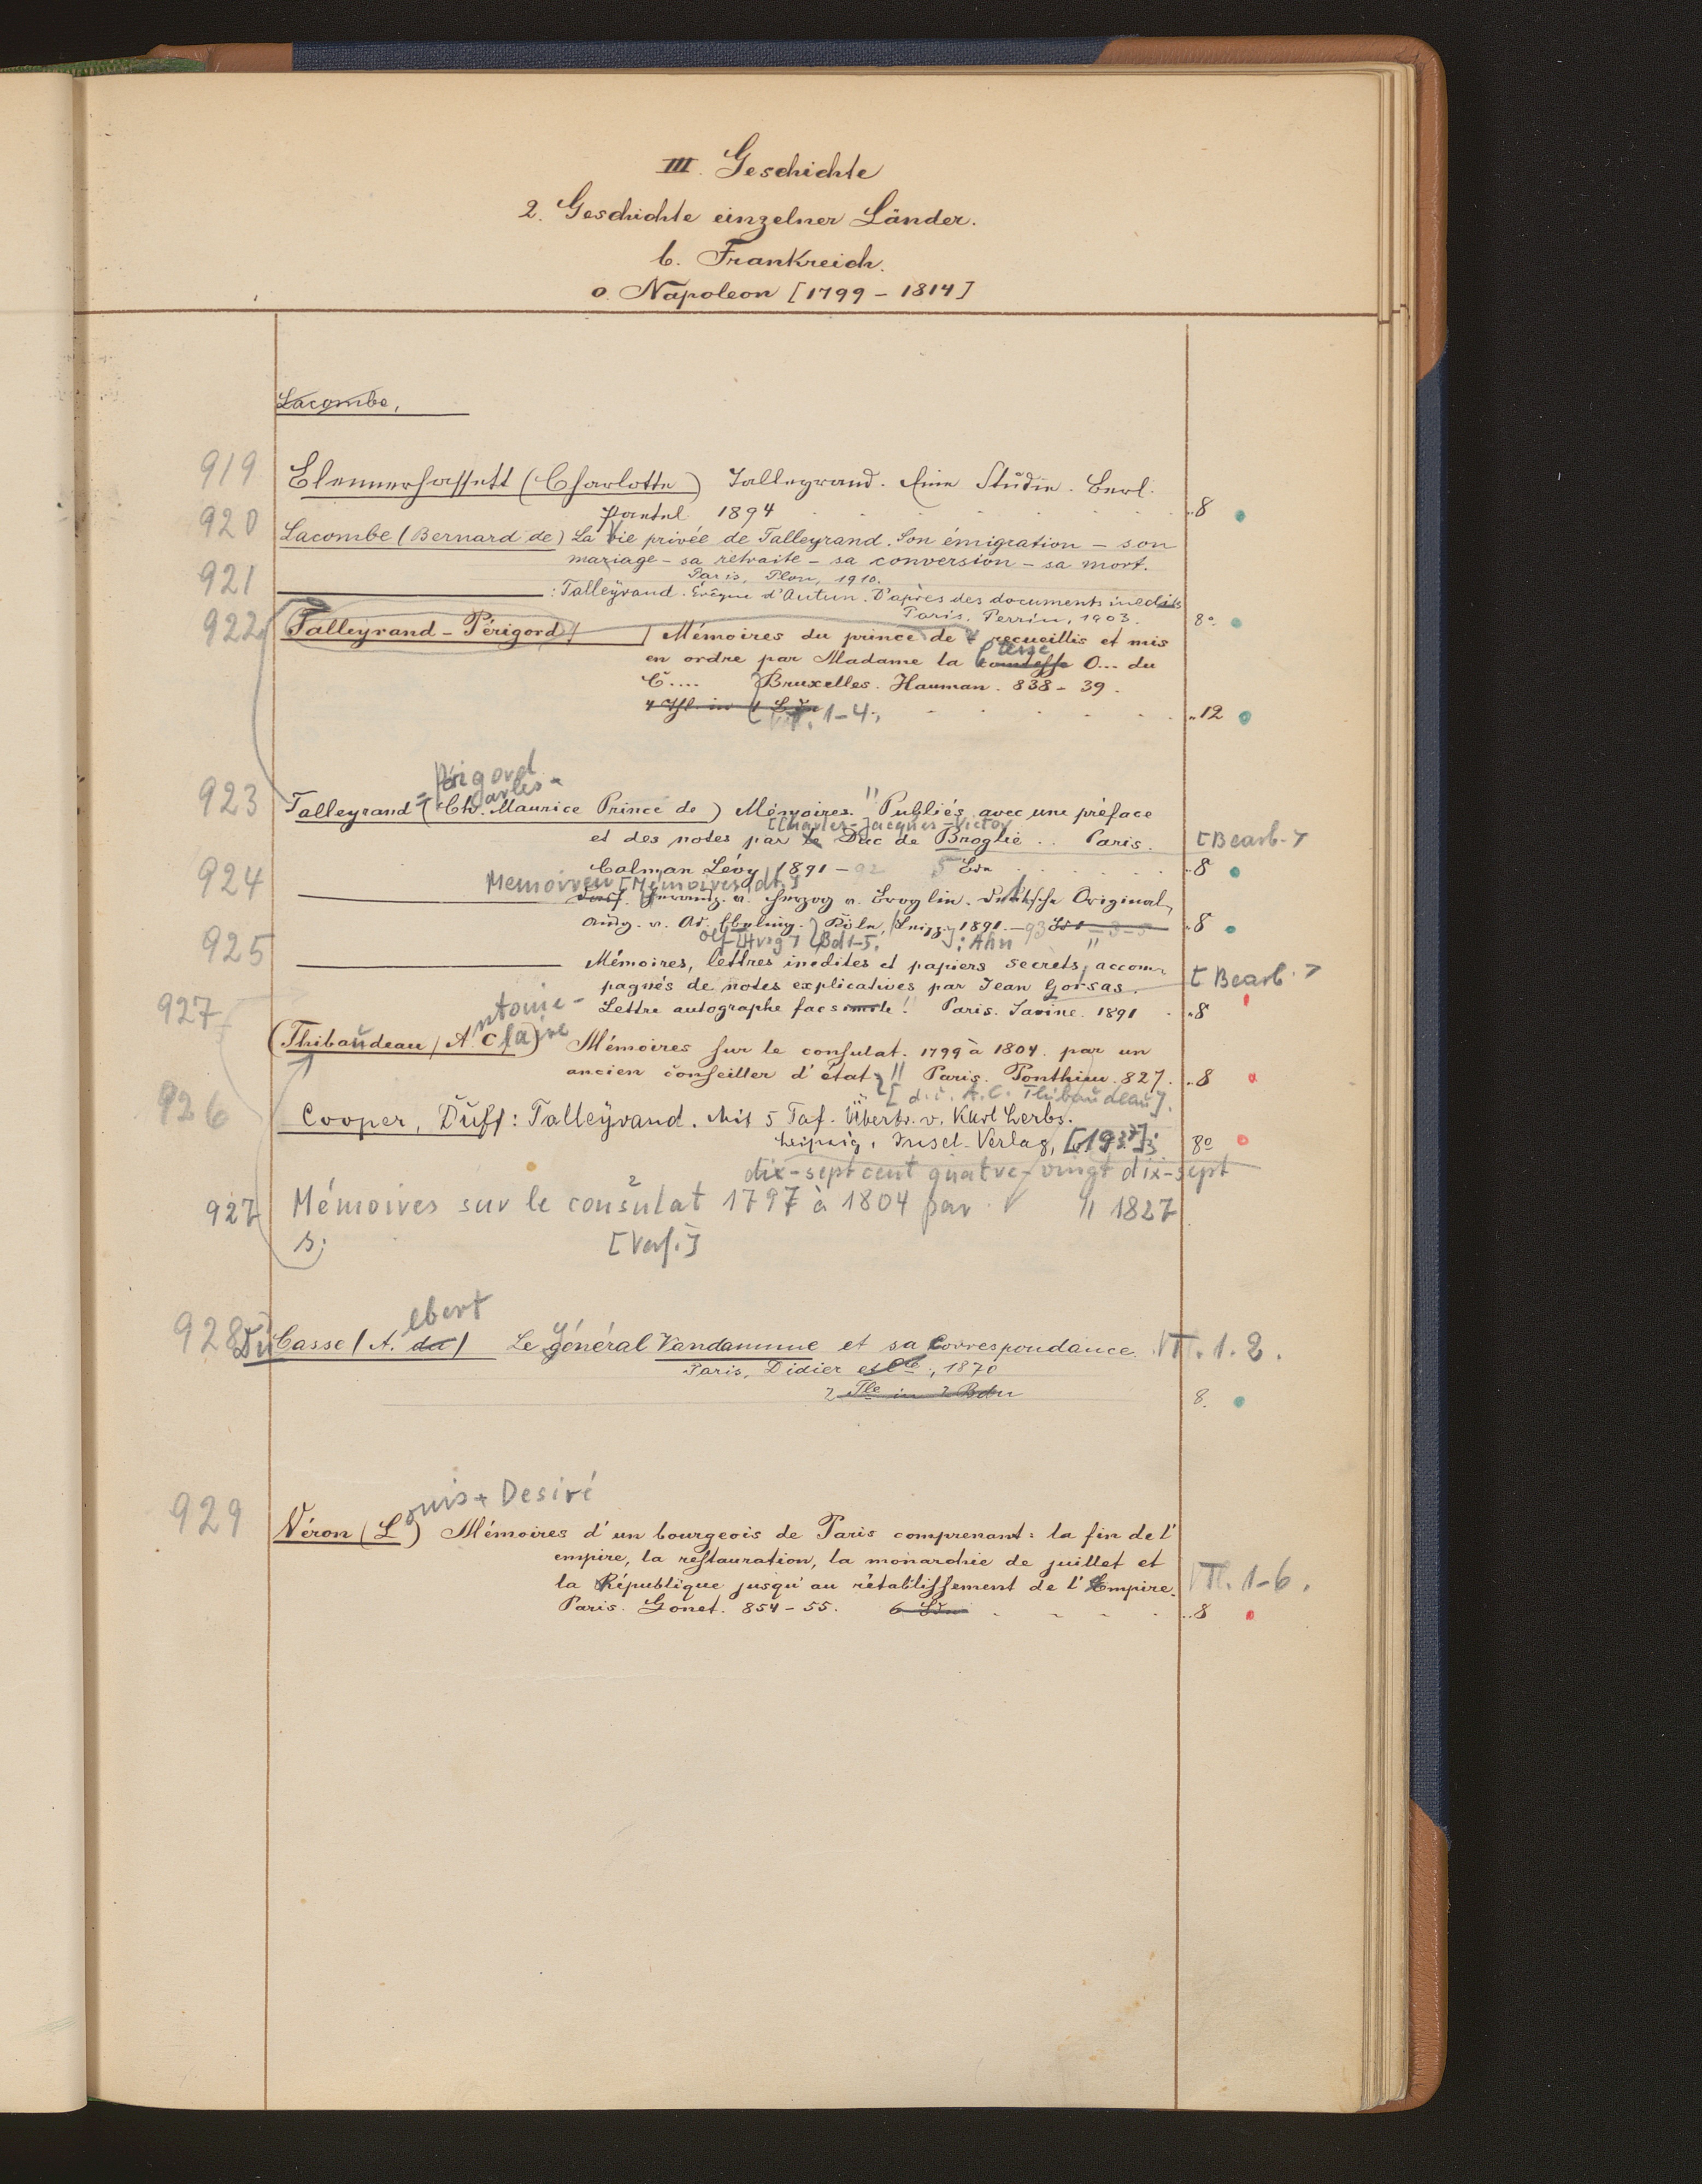 III. Geschichte
2. Geschichte einzelner Länder.
b. Frankreich.
o. Napoleon [1799 – 1814]
Lacombe,
919 Blennerhassett (Charlotte) Talleyrand. Eine Studie. Berl.
Paetel 1894 8
920 Lacombe (Bernard de) La Vie privée de Talleyrand. Son émigration – son
mariage – sa retraite – sa conversion – sa mort.
Paris, Plon, 1910.
921 : Talleyrand. Évêque d'Autun. D'après des documents inédits
Paris, Perrin, 1903. 8°
922 Talleyrand-Périgord Mémoires du prince de recueillis et mis
en ordre par Madame la comtesse O... du
C.... Bruxelles. Hauman. 838 – 39.
1–4. 12
Périgord
923 Talleyrand (Ch. Maurice Prince de) Mémoires. Publiés avec une préface
[Charles-Jacques-Victor
et des notes par le Duc de Broglie .. Paris. [Bearb.]
Calman Lévy 1891 – 92 5 Bde 8
924 Memoiren [Mémoires, dt.]
Herzog v. Broglie. Deutsche Original
Ausg. v. Ad. Ebeling. Köln, Leipz. 1891. – 93 8
[Hrsg] Bd 1–5. : Ahn
925 Mémoires, lettres inedites et papiers secrets, accom-
pagnés de notes explicatives par Jean Gorsas. [Bearb.]
Lettre autographe facsimile! Paris. Savine. 1891 8
927 ntoine-
(Thibaudeau (A. Claire) Mémoires sur le consulat. 1799 à 1804. par un
ancien conseiller d'état Paris. Ponthieu. 827. 8
[d. i. A. C. Thibaudeau].
926 Cooper, Duff: Talleyrand. Mit 5 Taf. Übertr. v. Karl Lerbs.
Leipzig, Insel-Verlag, [1937]; 8°
dix-sept cent quatre-vingt dix-sept
927 Mémoires sur le consulat 1797 à 1804 par 1827
s. [Verf.]
ebert
928 Du Casse (A. du) Le général Vandamme et sa Correspondance. Tl. 1. 2.
Paris, Didier et Cie, 1870
2 Tle in 2 Bdn 8.
ouis Desiré
929 Véron (L) Mémoires d'un bourgeois de Paris comprenant: la fin de l'
empire, la restauration, la monarchie de juillet et
la République jusqu'au rétablissement de l'Empire. Tl. 1–6.
Paris. Gonet. 854 – 55. 6 Bde 8